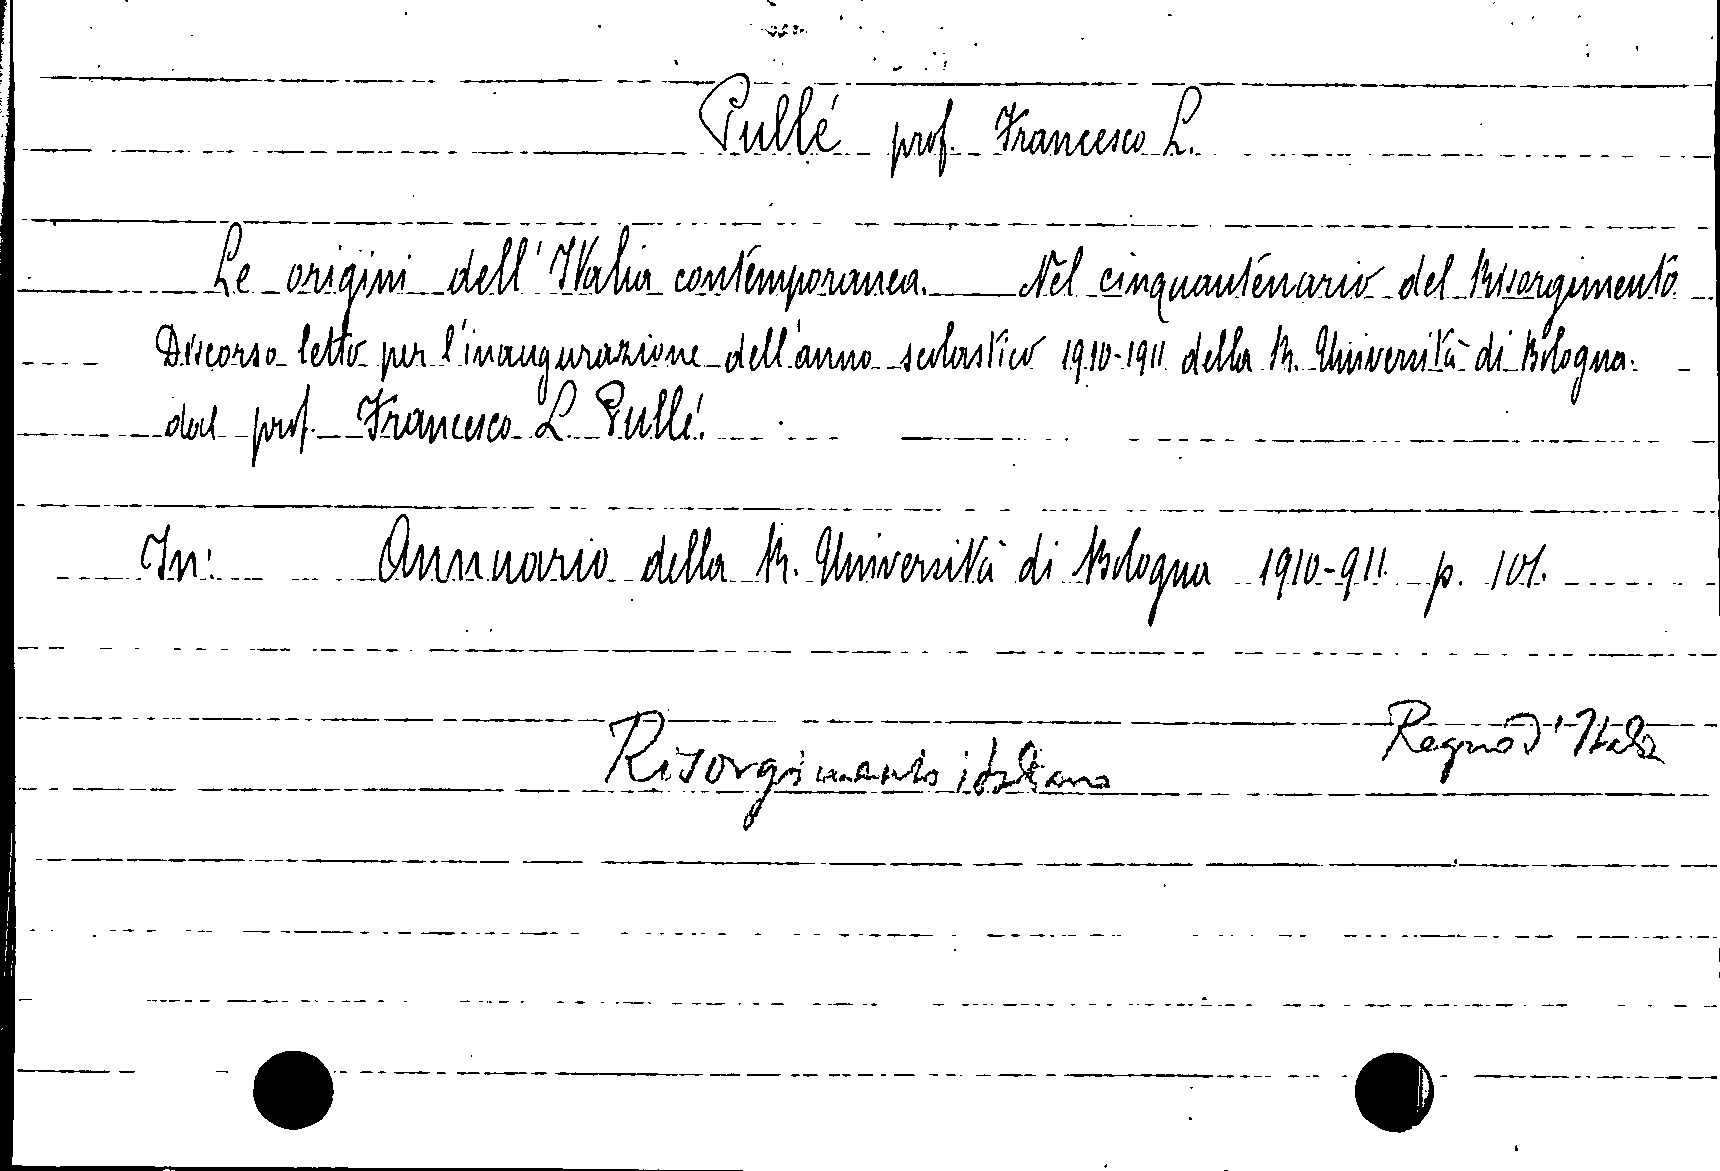 Pullé prof. Francesco L.
Le origini dell'Italia contemporanea. Nel cinquantenario del Risorgimento
Discorso letto per l'inaugurazione dell'anno scolastico 1910-1911 della R. Università di Bologna.
dal prof. Francesco L. Pullé.
In: Annuario della R. Università di Bologna 1910-911 p. 101.
Risorgimento italiano
Regno d'Italia